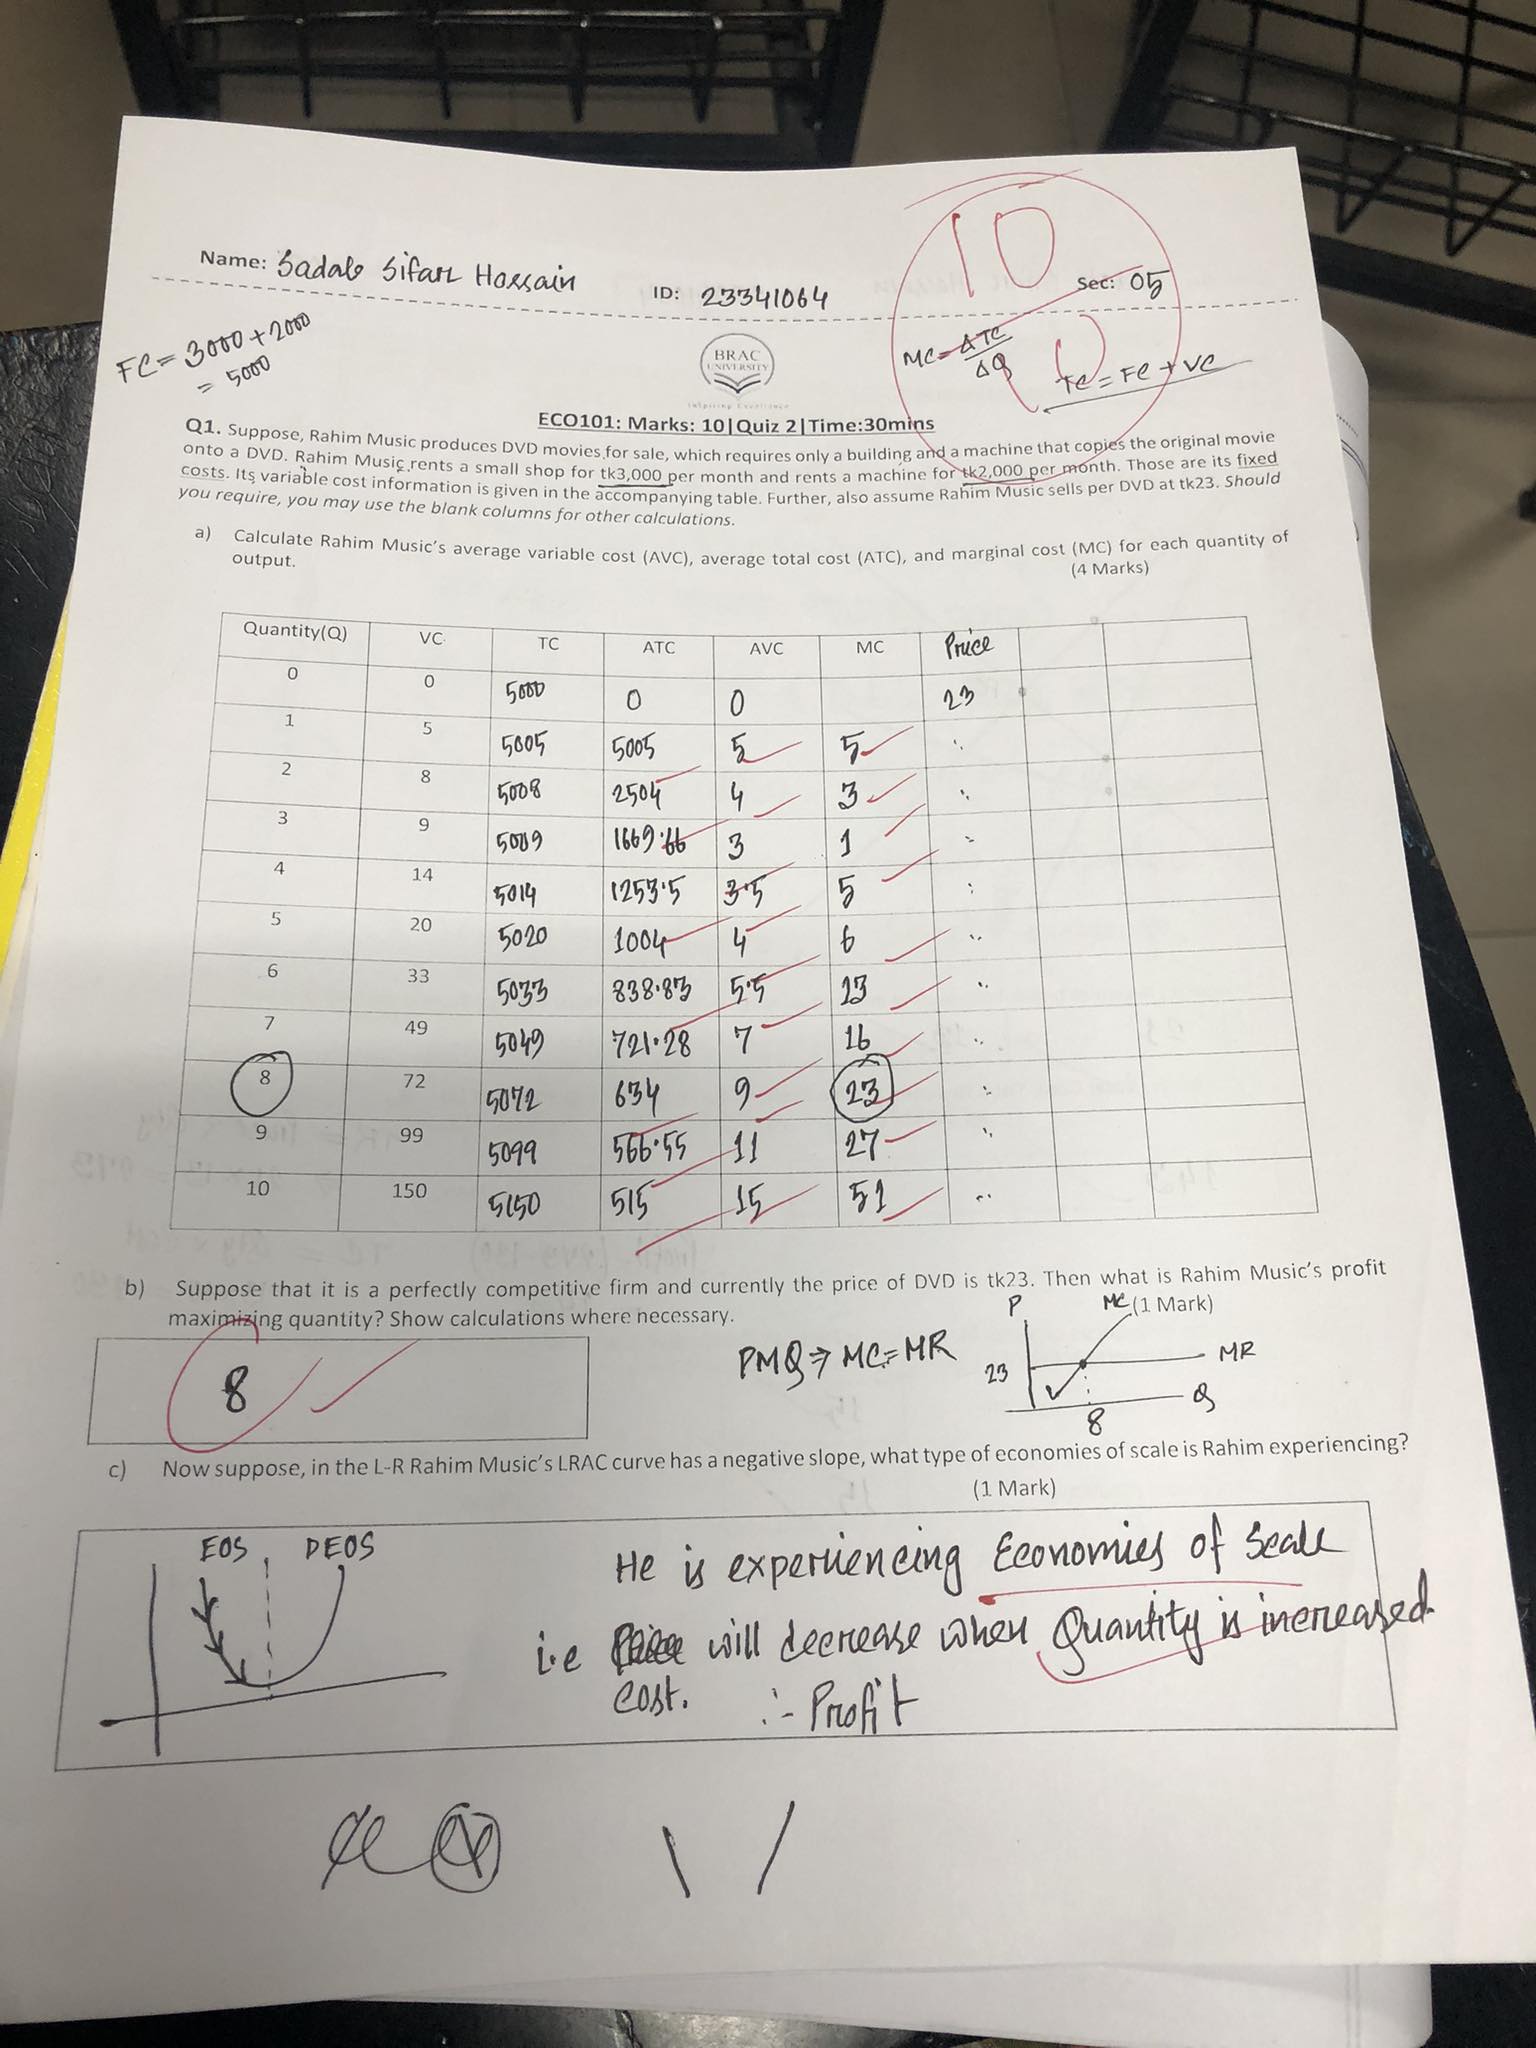 10
Name: Sadab Sifar Hossain ID: 23341064 Sec: 05
FC = 3000 + 2000
= 5000
BRAC
UNIVERSITY
Inspiring Excellence
MC = ΔTC
ΔQ
10
TC = FC + VC
ECO101: Marks: 10|Quiz 2|Time:30mins
Q1. Suppose, Rahim Music produces DVD movies for sale, which requires only a building and a machine that copies the original movie
onto a DVD. Rahim Music rents a small shop for tk3,000 per month and rents a machine for tk2,000 per month. Those are its fixed
costs. Its variable cost information is given in the accompanying table. Further, also assume Rahim Music sells per DVD at tk23. Should
you require, you may use the blank columns for other calculations.
a) Calculate Rahim Music's average variable cost (AVC), average total cost (ATC), and marginal cost (MC) for each quantity of
output. (4 Marks)
Quantity(Q) VC TC ATC AVC MC Price
0 0 5000 0 0 23
1 5 5005 5005 5 5 "
2 8 5008 2504 4 3 "
3 9 5009 1669.66 3 1 "
4 14 5014 1253.5 3.5 5 "
5 20 5020 1004 4 6 "
6 33 5033 838.83 5.5 13 "
7 49 5049 721.28 7 16 "
8 72 5072 634 9 23 "
9 99 5099 566.55 11 27 "
10 150 5150 515 15 51 "
b) Suppose that it is a perfectly competitive firm and currently the price of DVD is tk23. Then what is Rahim Music's profit
maximizing quantity? Show calculations where necessary. (1 Mark)
8
PMQ ⇒ MC = MR
P MC
23 MR
8 Q
c) Now suppose, in the L-R Rahim Music's LRAC curve has a negative slope, what type of economies of scale is Rahim experiencing?
(1 Mark)
EOS DEOS
He is experiencing Economies of Scale
i.e will decrease when Quantity is increased.
cost. ∴ Profit